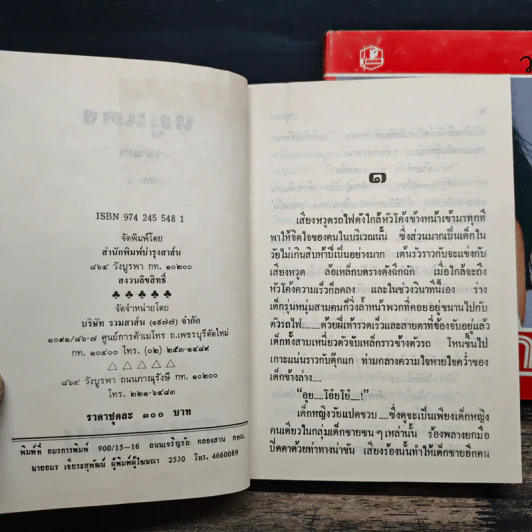 ISBN 974 245 548 1
จัดพิมพ์โดย
สำนักพิมพ์บำรุงสาส์น
๘๖๔ วังบูรพา กท. ๑๐๒๐๐
สงวนลิขสิทธิ์
จัดจำหน่ายโดย
บริษัท รวมสาส์น (๑๙๗๗) จำกัด
๑๐๙๑/๘๖-๗ ศูนย์การค้าเมโทร ถ.เพชรบุรีตัดใหม่
กท. ๑๐๔๐๐ โทร. (๐๒)
๘๖๙ วังบูรพา ถนนภาณุรังษี กท. ๑๐๒๐๐
โทร. ๒๒๑-๖๔๗๓
ราคาชุดละ ๓๐๐ บาท
พิมพ์ที่ อมรการพิมพ์ 900/15-16 ถนนเจริญรัถ คลองสาน กทม.
นายอมร เจียระสุพัฒน์ ผู้พิมพ์ผู้โฆษณา 2530 โทร. 4660089
๑
เสียงหวูดรถไฟดังใกล้หัวโค้งข้างหน้าเข้ามาทุกที
พาให้จิตใจของคนในบริเวณนั้น ซึ่งส่วนมากเป็นเด็กใน
วัยไม่เกินสิบห้าปีเป็นอย่างมาก เต้นรัวราวกับจะแข่งกับ
เสียงหวูด ล้อเหล็กบดรางดังฉึกฉัก เมื่อใกล้จะถึง
หัวโค้งความเร็วก็ลดลง และในช่วงวินาทีนี้เอง ร่าง
เด็กรุ่นหนุ่มสามคนที่วิ่งล้ำหน้าพวกที่คอยอยู่ขนานไปกับ
ตัวรถไฟ........ด้วยฝีเท้ารวดเร็วและสายตาที่จ้องจับอยู่แล้ว
เด็กทั้งสามเหนี่ยวตัวจับเหล็กราวข้างตัวรถ โหนขึ้นไป
เกาะแน่นราวกับตุ๊กแก ท่ามกลางความใจหายใจคว่ำของ
เด็กข้างล่าง....
“อุย....โอ๊ยโย้....!”
เด็กหญิงวัยแปดขวบ ....ซึ่งดูจะเป็นเพียงเด็กหญิง
คนเดียวในกลุ่มเด็กชายซน ๆ เหล่านั้น ร้องพลางยกมือ
ปิดตาด้วยท่าทางน่าขัน เสียงร้องนั้นทำให้เด็กชายอีกคน